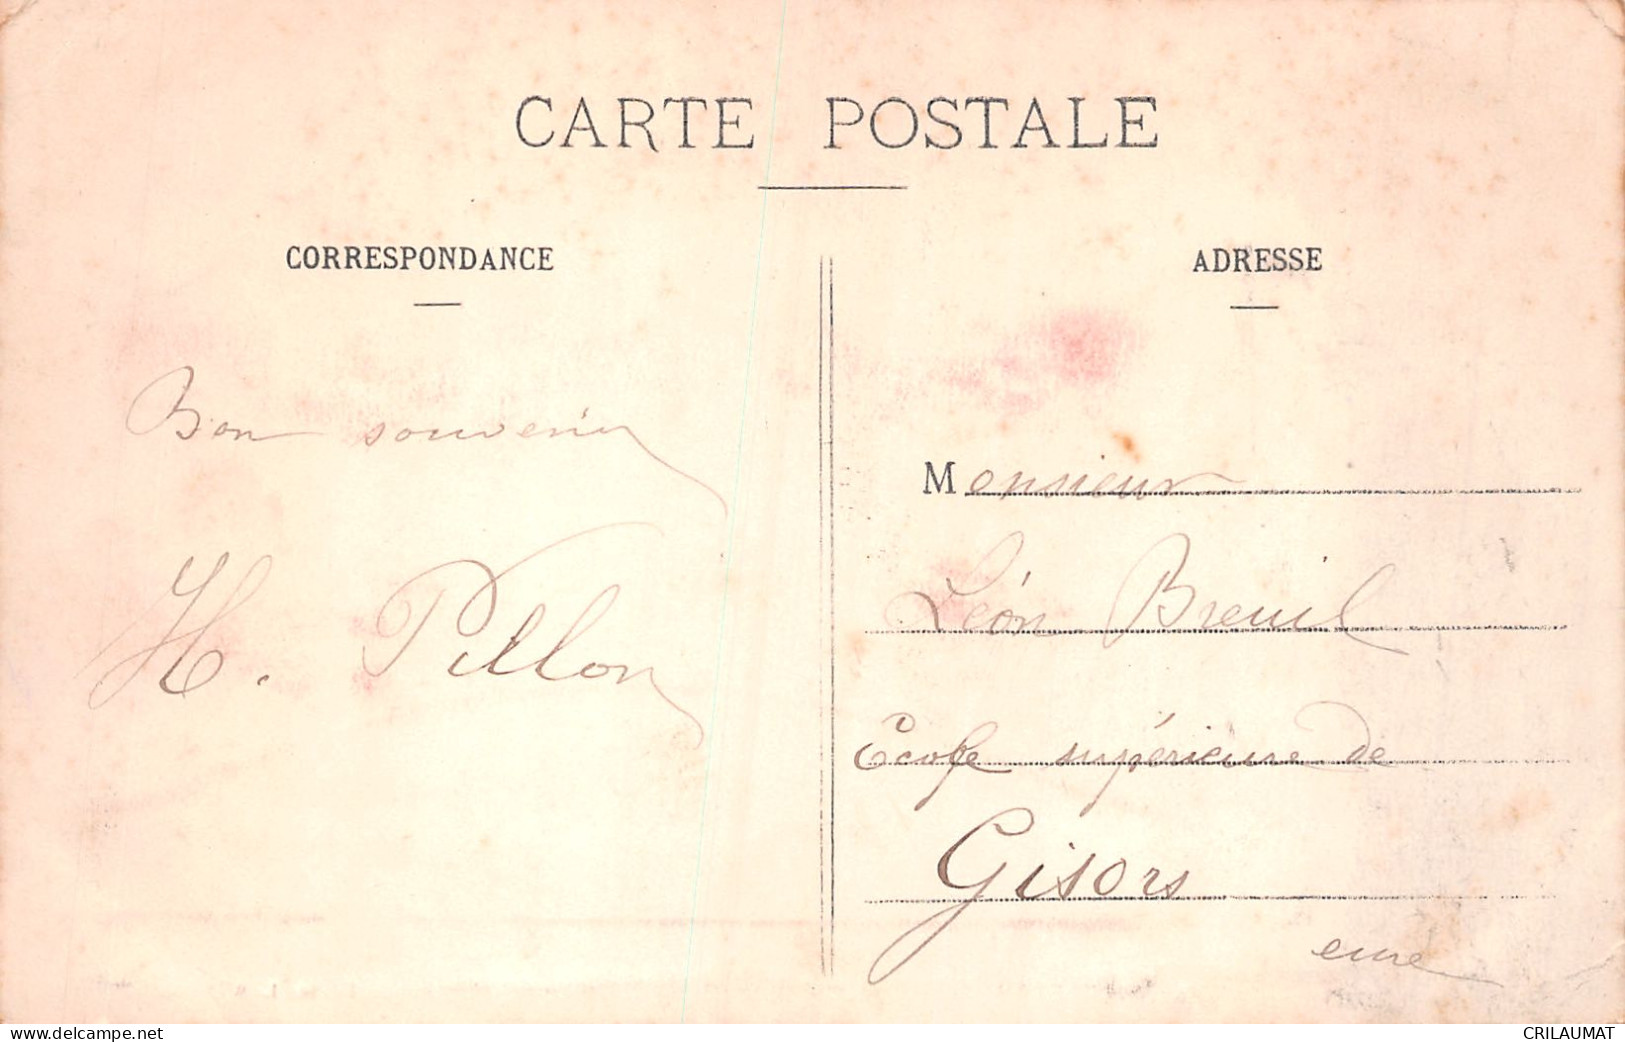 CARTE POSTALE
CORRESPONDANCE
ADRESSE
Bon souvenir
H. Pillon
Monsieur
Léon Breuil
Ecole supérieure de
Gisors
eure
www.delcampe.net
CRILAUMAT